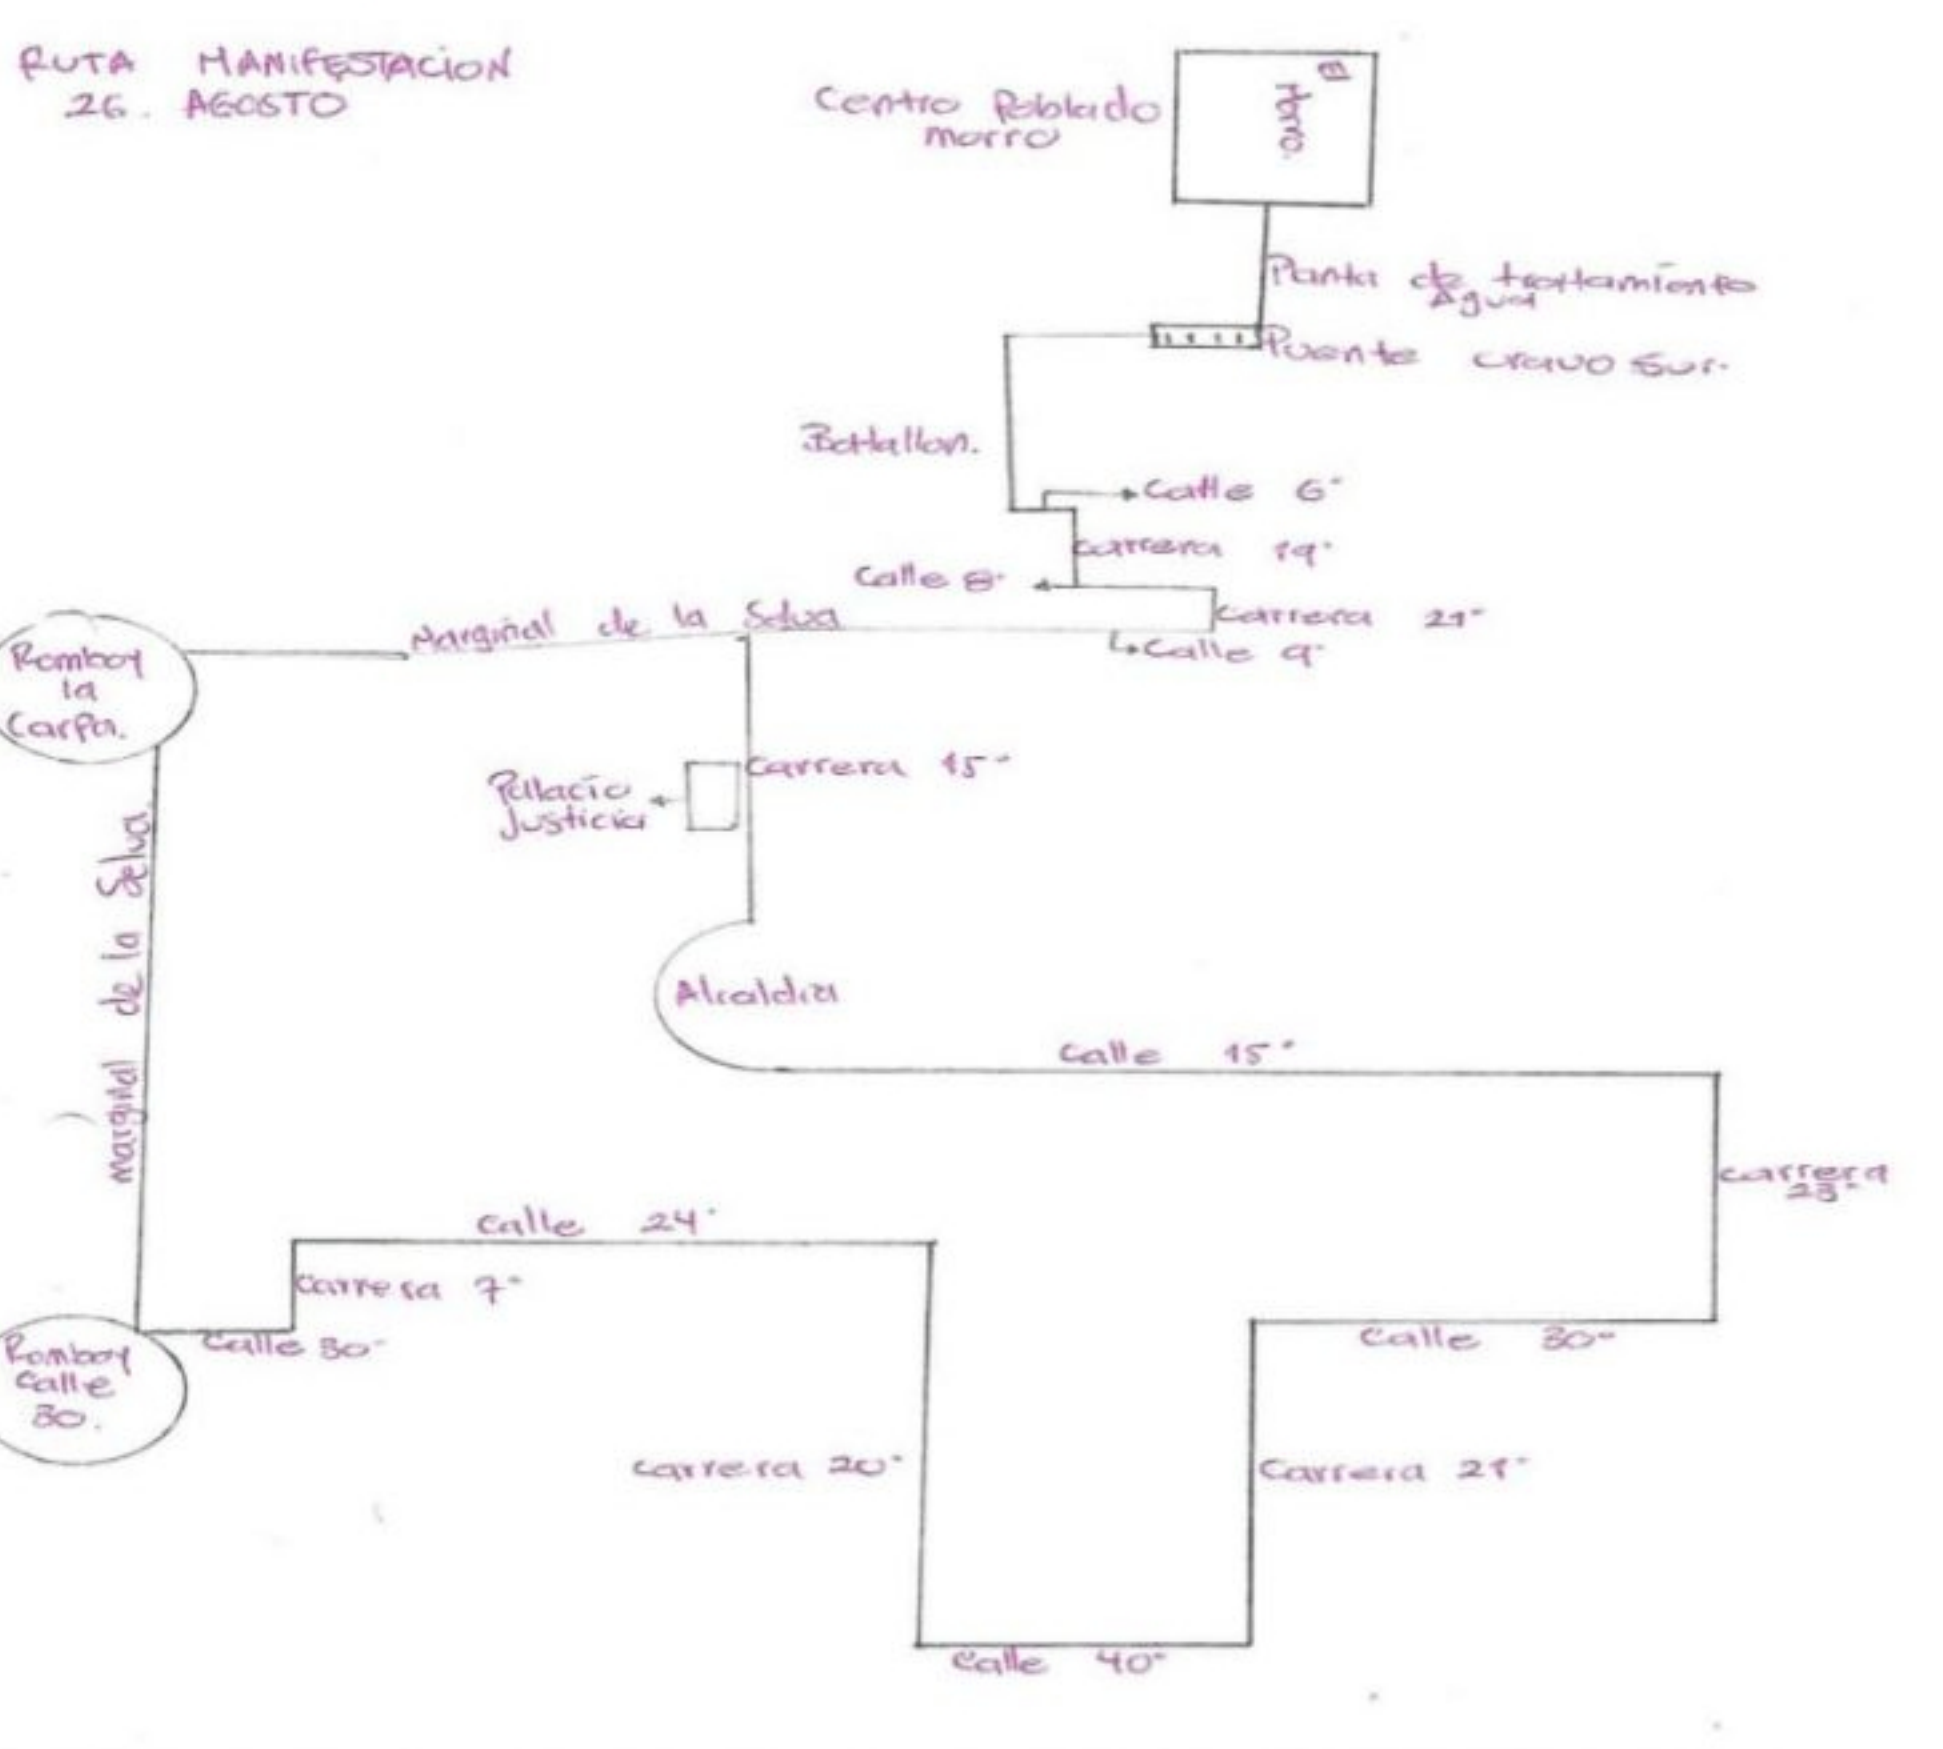 RUTA MANIFESTACION
26. AGOSTO
Centro Poblado
morro
El
Morro.
Planta de tratamiento
Agua
Puente cravo Sur.
Batallon.
Calle 6°
carrera 19°
Calle 8°
Marginal de la Selva
Carrera 21°
Calle 9°
Romboy
la
Carpa.
Carrera 15°
Pallacio
Justicia
marginal de la Selva.
Alcaldia
Calle 15°
carrera
23°
Calle 24°
Carrera 7°
Calle 30°
Romboy
Calle
30.
Calle 30°
carrera 20°
Carrera 21°
Calle 40°